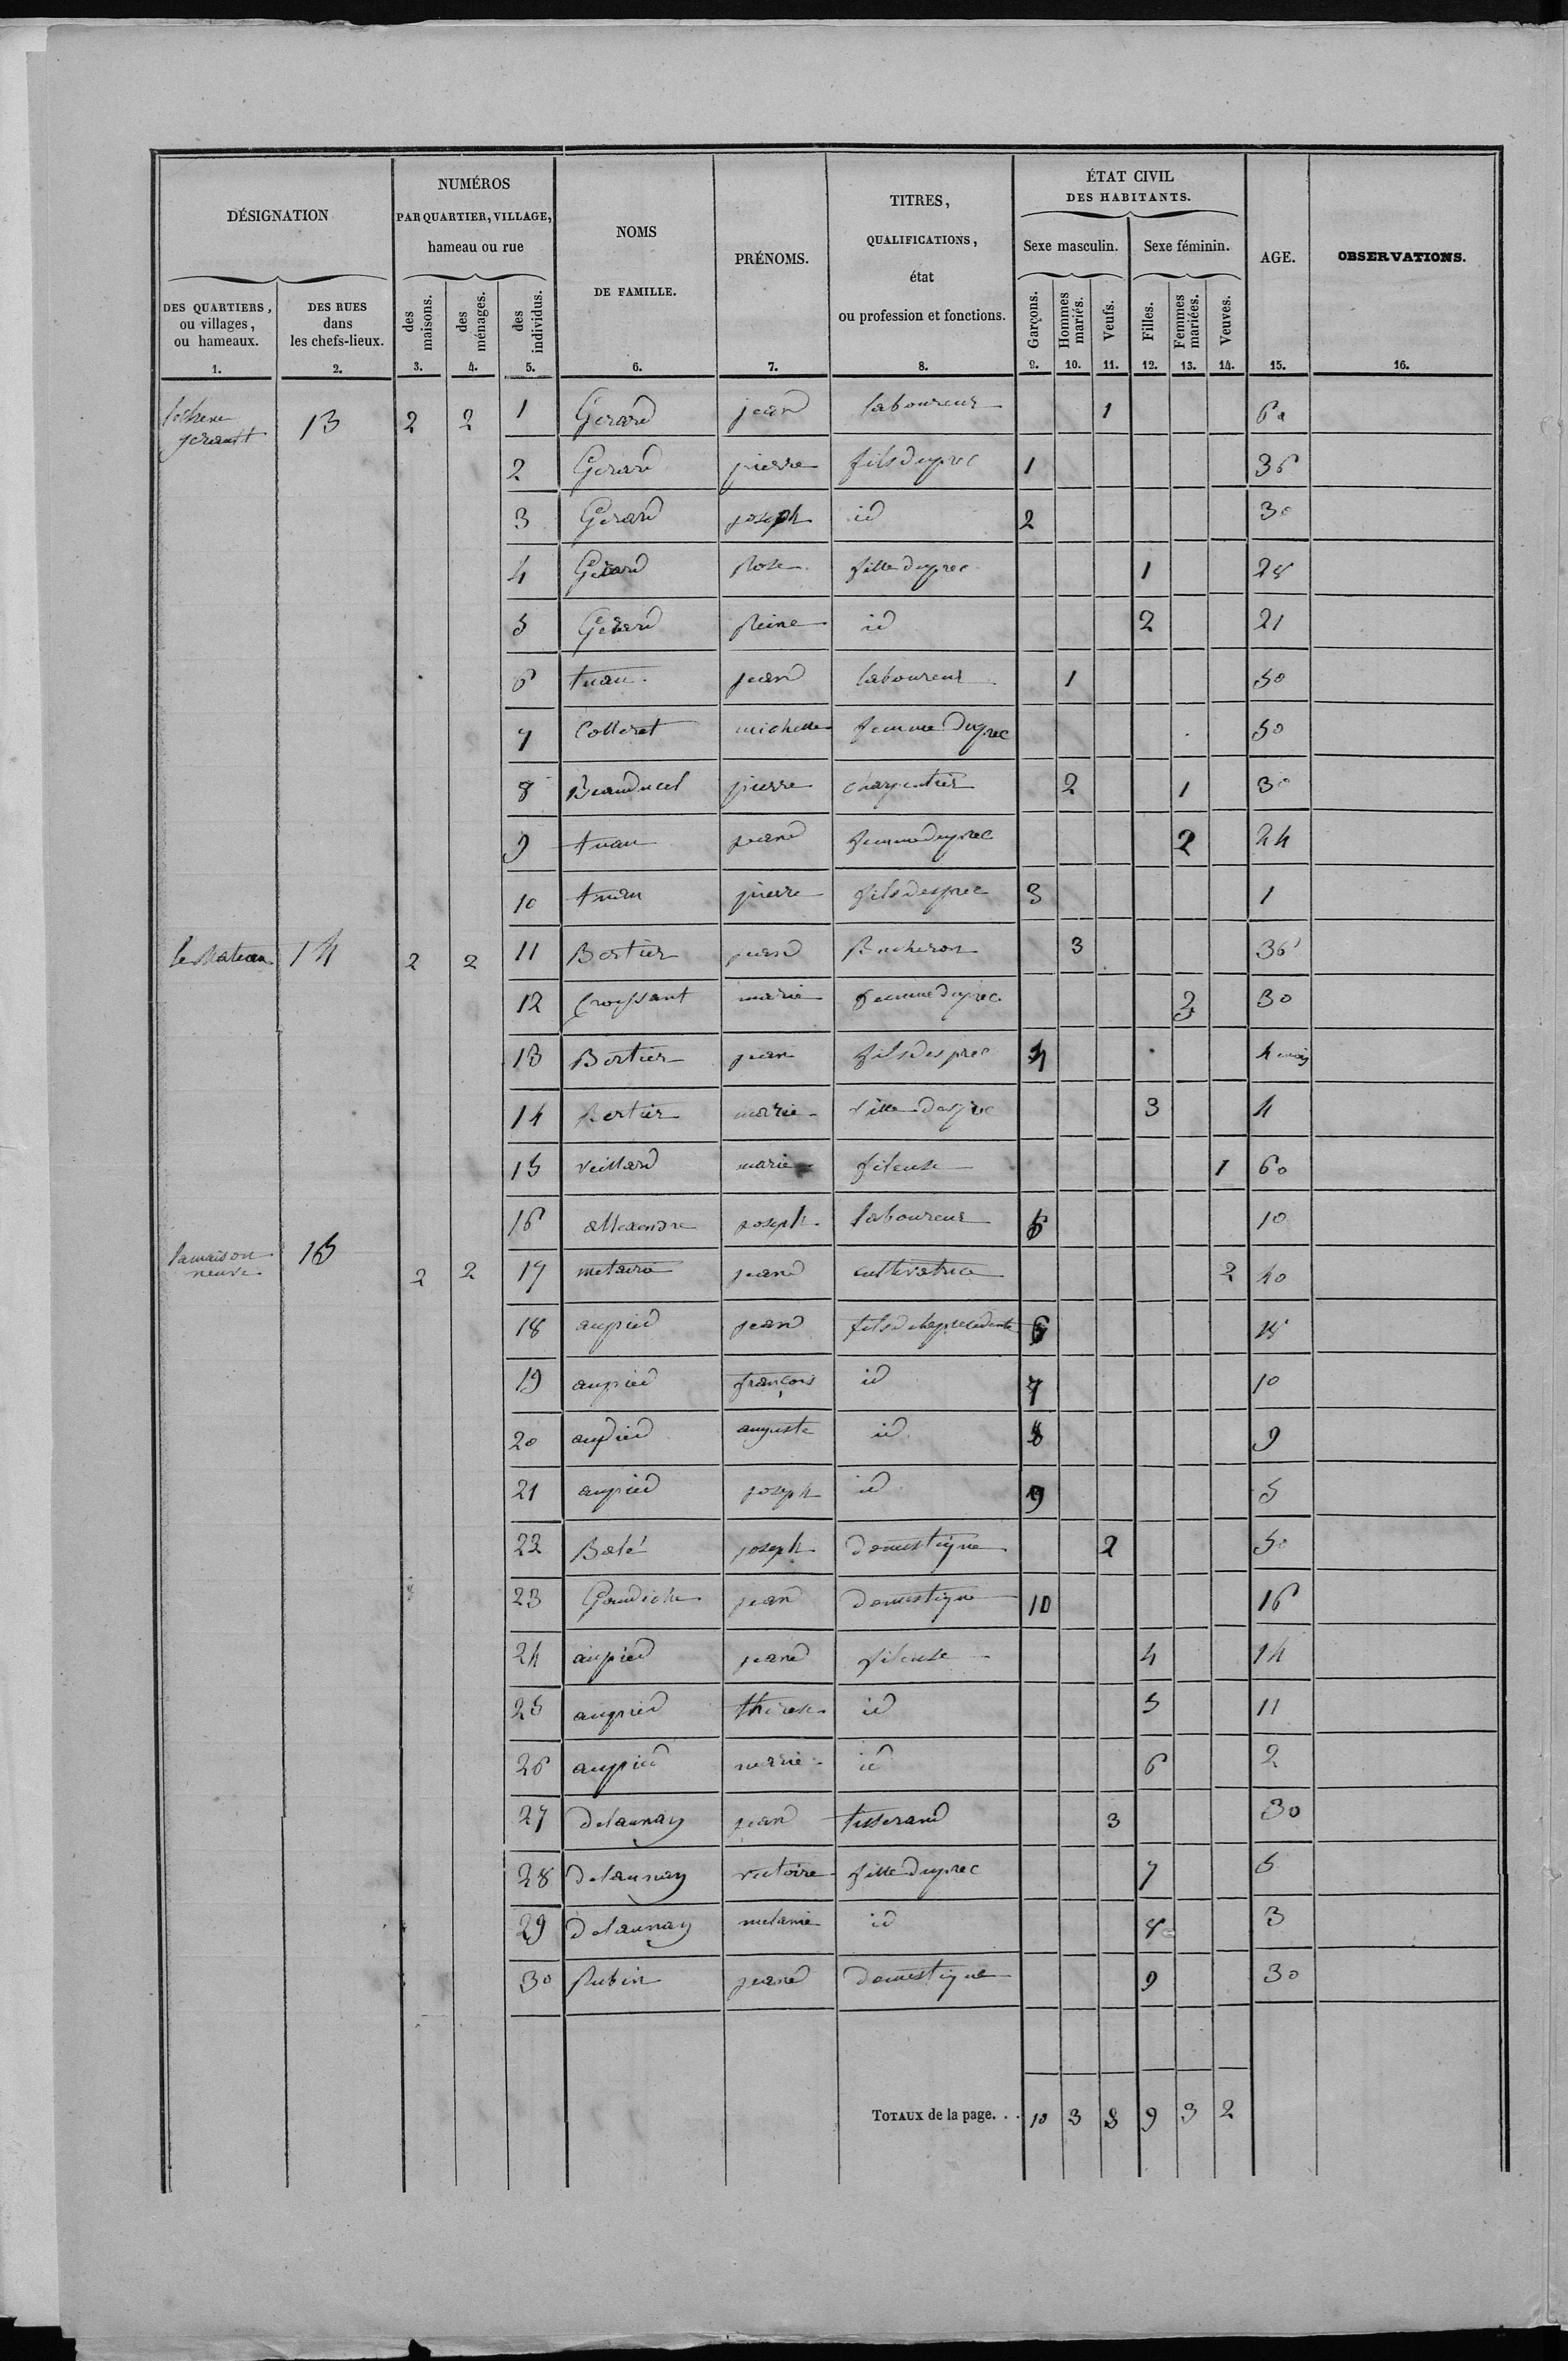 DÉSIGNATION
NUMÉROS
PAR QUARTIER, VILLAGE,
hameau ou rue
NOMS
DE FAMILLE.
PRÉNOMS.
TITRES,
QUALIFICATIONS,
état
ou profession et fonctions.
ÉTAT CIVIL
DES HABITANTS.
Sexe masculin. Sexe féminin.
AGE.
OBSERVATIONS.
DES QUARTIERS,
ou villages,
ou hameaux.
DES RUES
dans
les chefs-lieux.
des maisons.
des ménages.
des individus.
Garçons.
Hommes mariés.
Veufs.
Filles.
Femmes mariées.
Veuves.
1. 2. 3. 4. 5. 6. 7. 8. 9. 10. 11. 12. 13. 14. 15. 16.
13 2 2 1 Gerard jean laboureur 1 60
2 Gerard pierre fils du prec 1 36
3 Gerard joseph id 2 30
4 Gerard Rose fille du prec 1 28
5 Gerard Reine id 2 21
6 tuau jean laboureur 1 50
7 Colleret michelle femme du prec 50
8 Beauducel pierre charpentier 2 1 30
9 tuau jeane femme du prec 2 24
10 tuau pierre fils des prec 3 1
14 2 2 11 Bertier jean Bucheron 3 36
12 Croissant marie femme du prec 3 30
13 Bertier jean fils des prec 4 4 mois
14 Bertier marie fille des prec 3 4
15 Veillard marie fileuse 1 60
16 allexandre joseph laboureur 5 10
la maison
neuve 15 2 2 17 metairie jeane cultivatrice 2 40
18 aupied jean fils de la precedente 6 18
19 aupied françois id 7 10
20 aupied auguste id 8 9
21 aupied joseph id 9 5
22 Balé joseph domestique 2 50
23 Gaudiche jean domestique 10 16
24 aupied jeane fileuse 4 14
25 aupied therese id 5 11
26 aupied marie id 6 2
27 delaunay jean tisserand 3 30
28 delaunay victoire fille du prec 7 5
29 delaunay melanie id 8 3
30 Rubin jeane domestique 9 30
TOTAUX de la page. . . 10 3 3 9 3 2